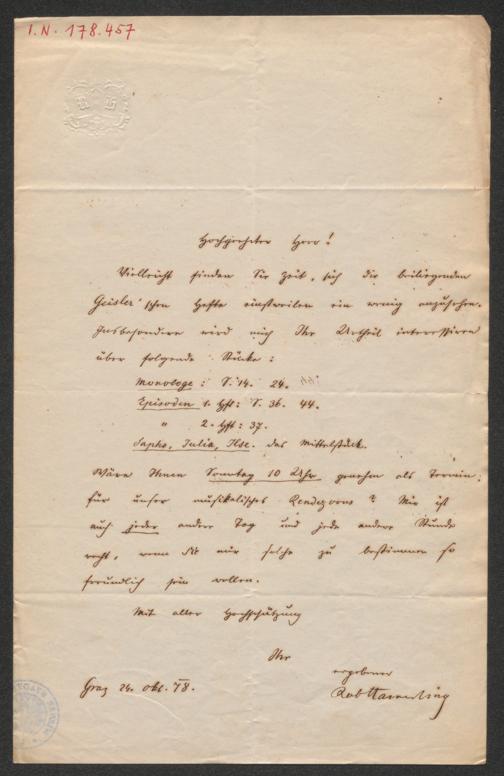 I.N. 178.457
Hochgeehrter Herr!
Vielleicht finden Sie Zeit, sich die beiliegenden
Geisler'schen Hefte einstweilen ein wenig anzusehen.
Insbesondere wird mich Ihr Urtheil interessiren
über folgende Stücke:
Monologe: S. 14. 24. 44.
Episoden 1. Hft: S. 36. 44.
" 2. Hft: 37.
Sapho, Julia, Ilse. das Mittelstück.
Wäre Ihnen Sonntag 10 Uhr genehm als Termin
für unser musikalisches Rendezvous? Mir ist
auch jeder andere Tag und jede andere Stunde
recht, wenn Sie mir solche zu bestimmen so
freundlich sein wollen.
Mit aller Hochschätzung
Ihr
ergebener
Graz 24. Okt. 78. Rob Hamerling